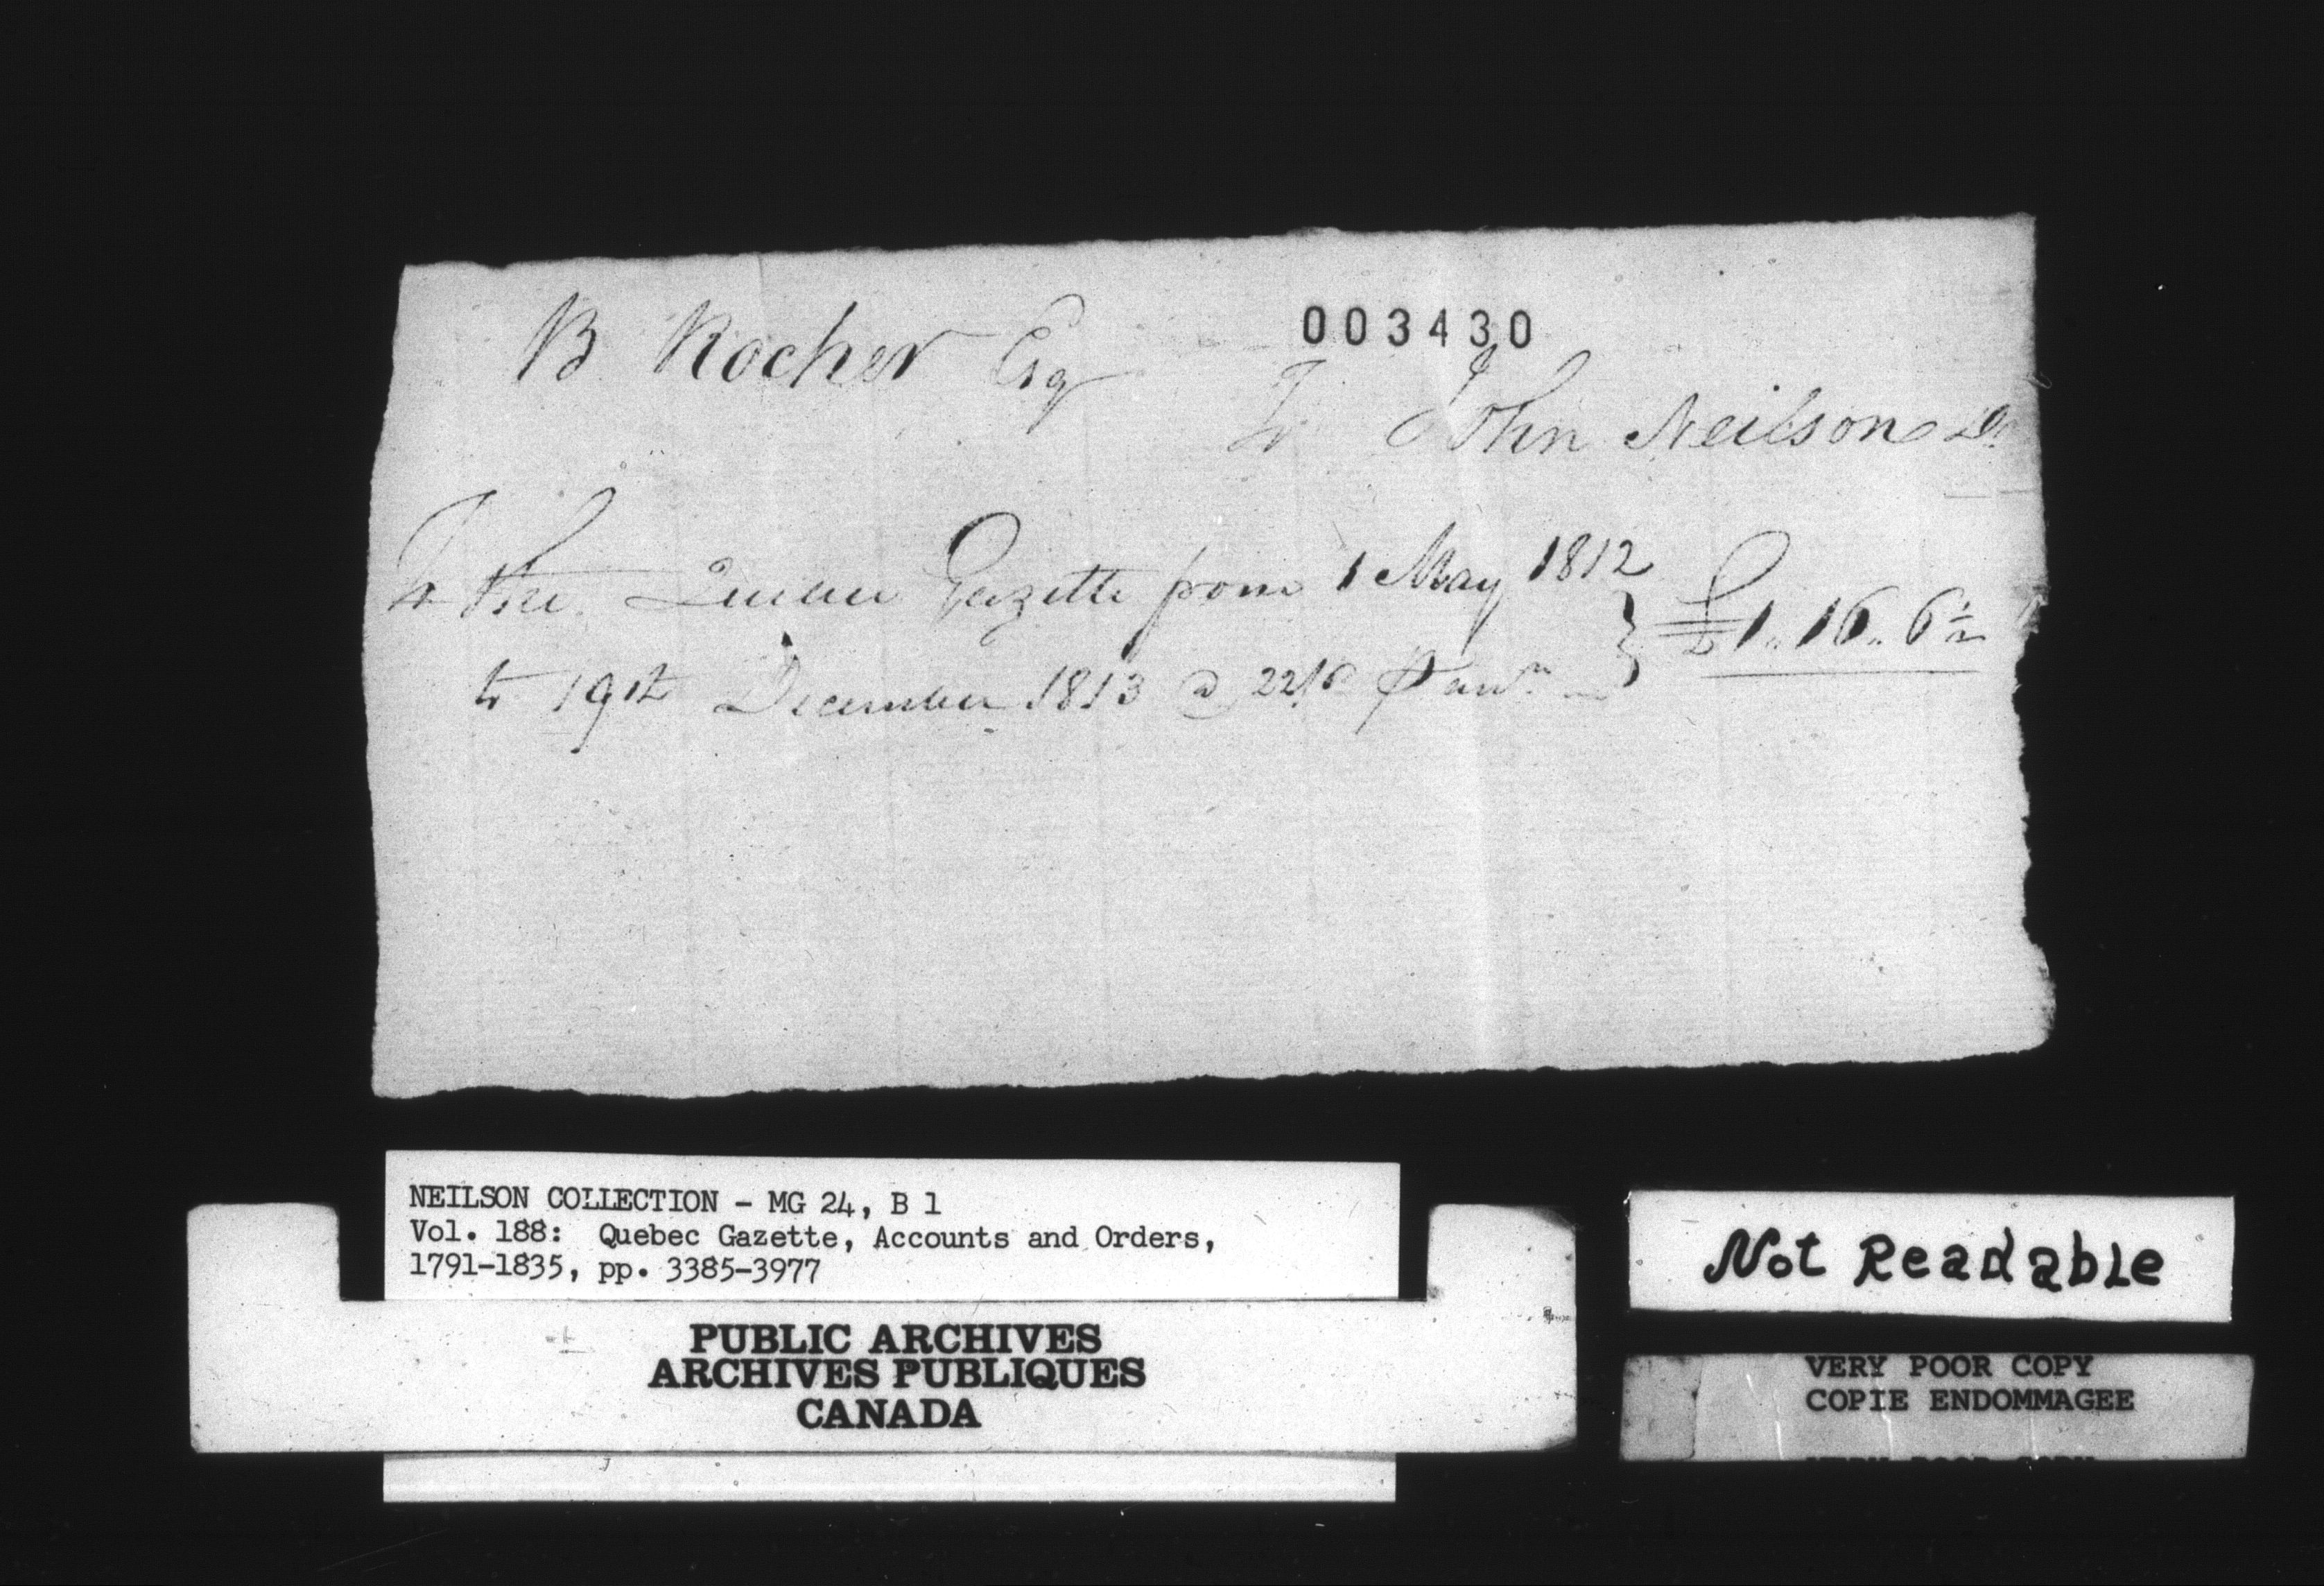 003430
B Rocher Esq
To John Neilson Dr
To the Quebec Gazette from 1 May 1812
to 19th December 1813 @ 22/6 ⅌ annm } £1..16..6½
NEILSON COLLECTION - MG 24, B 1
Vol. 188: Quebec Gazette, Accounts and Orders,
1791-1835, pp. 3385-3977
PUBLIC ARCHIVES
ARCHIVES PUBLIQUES
CANADA
Not Readable
VERY POOR COPY
COPIE ENDOMMAGEE
VERY POOR COPY